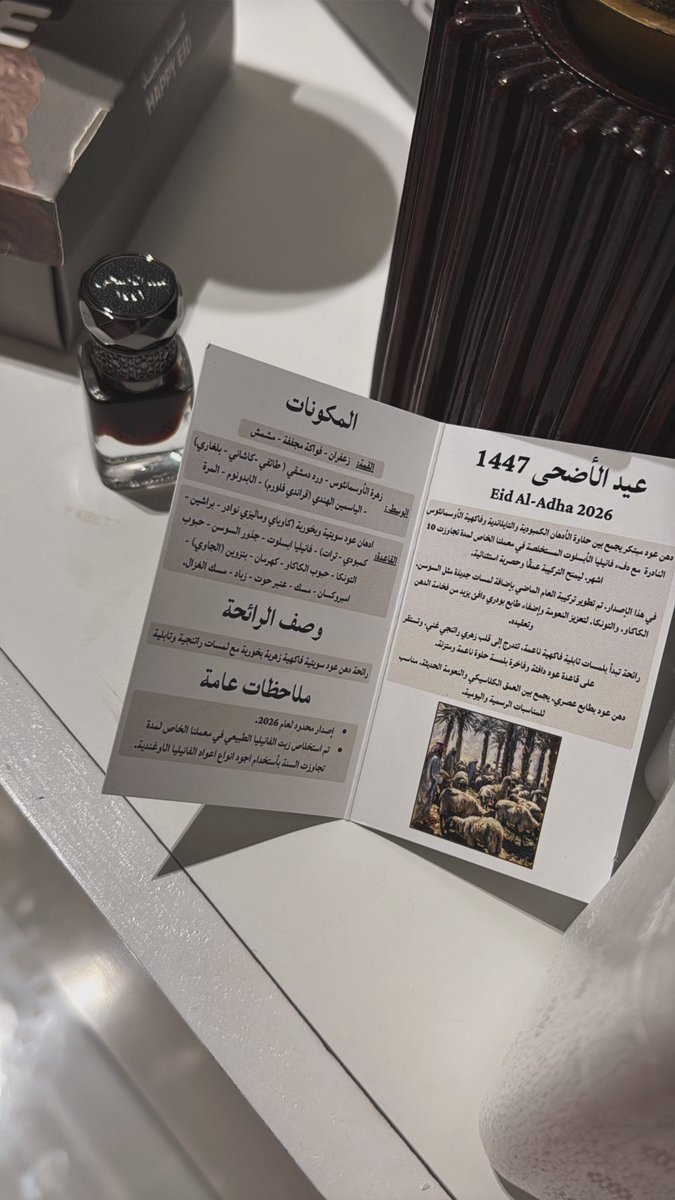 HAPPY EID
1447
عيد الأضحى 1447
Eid Al-Adha 2026
دهن عود مبتكر يجمع بين حفاوة الأدهان الكمبودية والتايلاندية وفاكهية الأوسمانثوس
النادرة مع دفء فانيليا الأبسلوت المستخلصة في معملنا الخاص لمدة تجاوزت 10
اشهر، ليمنح التركيبة عمقًا وحصرية استثنائية.
في هذا الإصدار، تم تطوير تركيبة العام الماضي بإضافة لمسات جديدة مثل السوسن،
الكاكاو، والتونكا، لتعزيز النعومة وإضفاء طابع بودري دافئ يزيد من فخامة الدهن
وتعقيده.
رائحة تبدأ بلمسات تابلية فاكهية ناعمة، لتتدرج إلى قلب زهري راتنجي غني، وتستقر
على قاعدة عود دافئة وفاخرة بلمسة حلوة ناعمة ومتزنة.
دهن عود بطابع عصري، يجمع بين العمق الكلاسيكي والنعومة الحديثة، مناسب
للمناسبات الرسمية واليومية.
المكونات
القمة: زعفران - فواكة مجففة - مشمش
الوسطى: زهرة الأوسمانثوس - ورد دمشقي ( طائفي -كاشاني - بلغاري)
- الياسمين الهندي (قراندي فلورم) - اللابدونوم - المرة
القاعدة: ادهان عود سويتية وبخورية (كاوباي وماليزي نوادر - براشين -
كمبودي - ترات) - فانيليا ابسلوت - جذور السوسن - حبوب
التونكا - حبوب الكاكاو - كهرمان - بنزوين (الجاوي) -
امبروكسان - مسك - عنبر حوت - زباد - مسك الغزال.
وصف الرائحة
رائحة دهن عود سويتية فاكهية زهرية بخورية مع لمسات راتنجية وتابلية
ملاحظات عامة
• إصدار محدود لعام 2026.
• تم استخلاص زيت الفانيليا الطبيعي في معملنا الخاص لمدة
تجاوزت السنة بأستخدام اجود انواع اعواد الفانيليا الاوغندية.